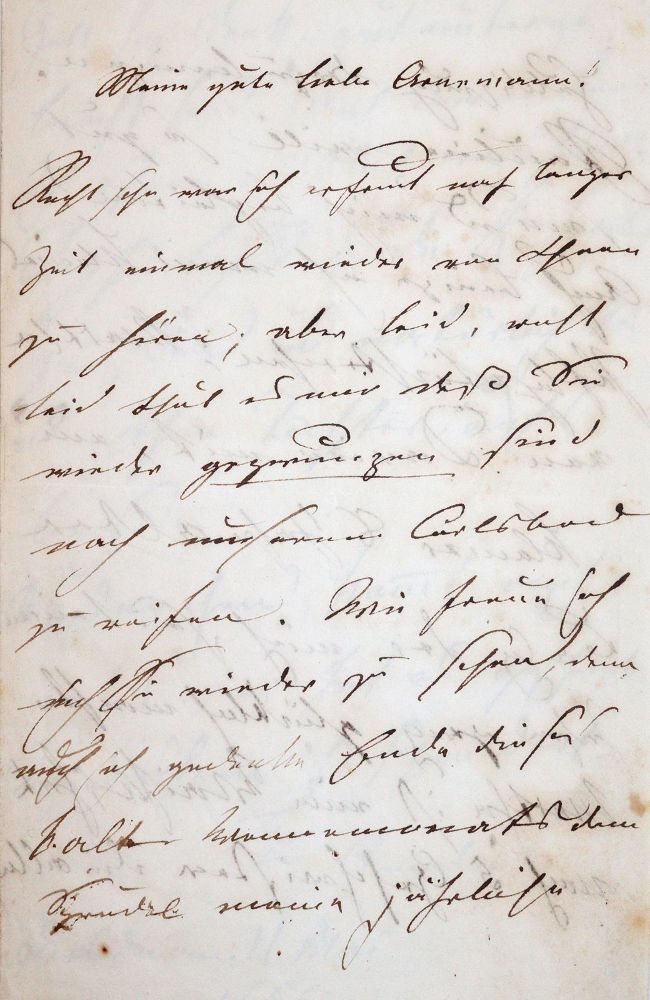 Meine gute liebe Arnemann!
Recht sehr war ich erfreut nach langer
Zeit einmal wieder von Ihnen
zu hören; aber leid, recht
leid thut es mir daß Sie
wieder gezwungen sind
nach unserem Carlsbad
zu reisen. Wie freue ich
mich Sie wieder zu sehen, denn
auch ich gedenke Ende dieses
kalten Wonnemonats dem
Sprudel meine jährliche